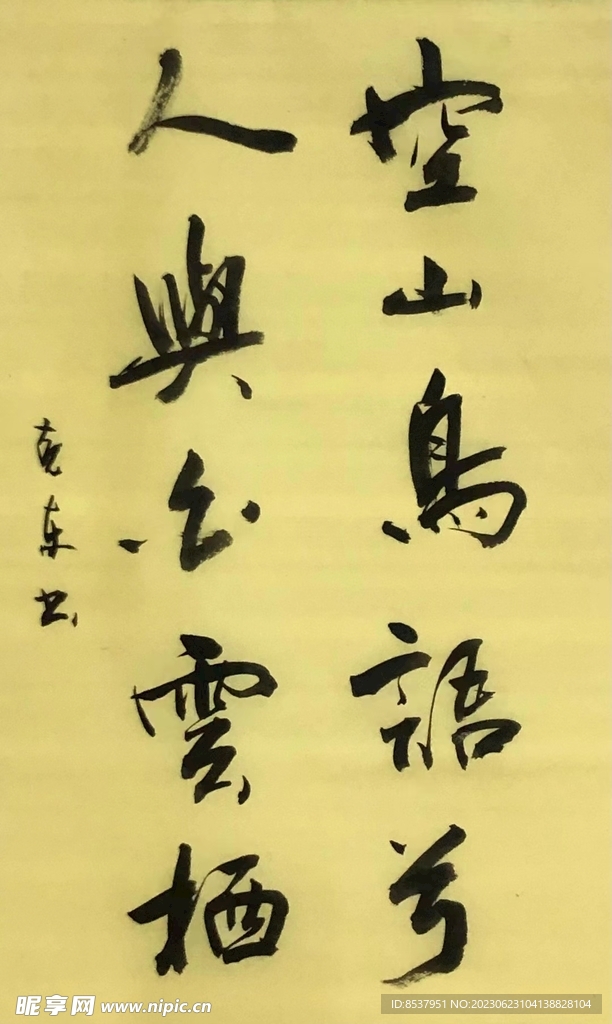 空山鳥語兮
人與白雲栖
克东书
昵享网 www.nipic.cn
ID:8537951 NO:20230623104138828104